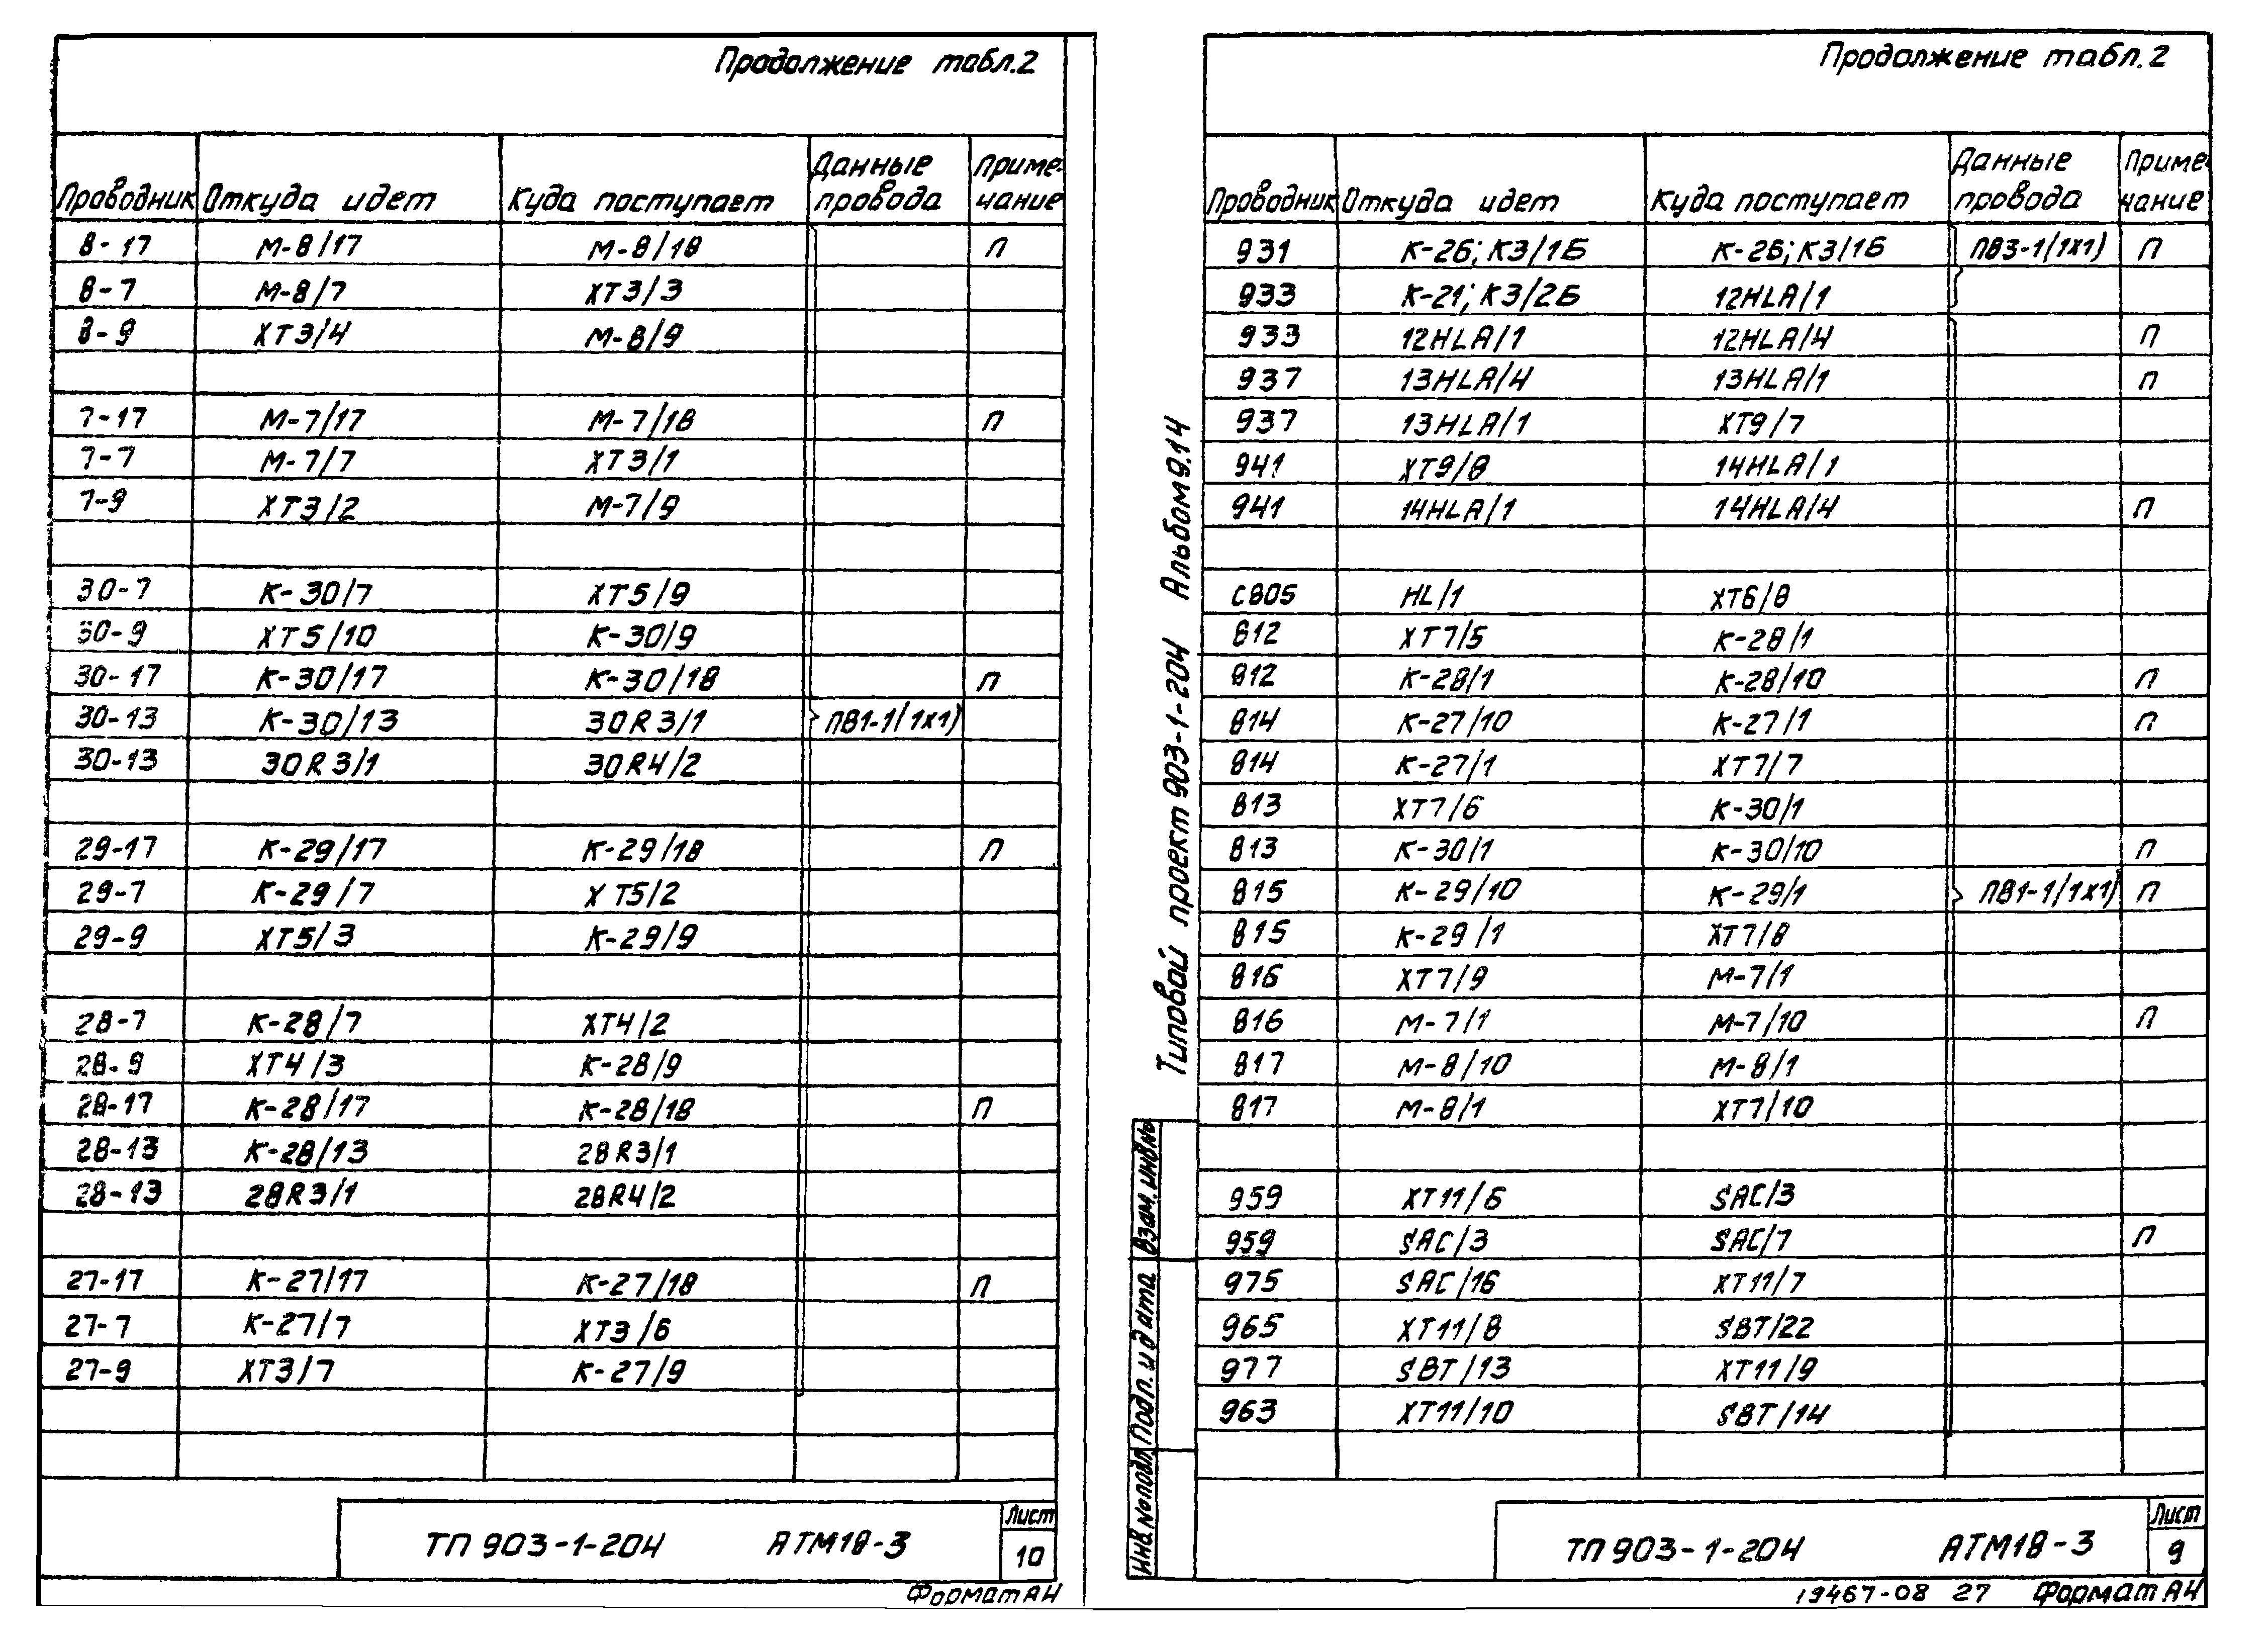 Продолжение табл.2
Проводник Откуда идет Куда поступает Данные провода Примечание
8-17 М-8/17 М-8/18 П
8-7 М-8/7 ХТ3/3
8-9 ХТ3/4 М-8/9
7-17 М-7/17 М-7/18 П
7-7 М-7/7 ХТ3/1
7-9 ХТ3/2 М-7/9
30-7 К-30/7 ХТ5/9
30-9 ХТ5/10 К-30/9
30-17 К-30/17 К-30/18 П
30-13 К-30/13 30R3/1 ПВ1-1(1х1)
30-13 30R3/1 30R4/2
29-17 К-29/17 К-29/18 П
29-7 К-29/7 ХТ5/2
29-9 ХТ5/3 К-29/9
28-7 К-28/7 ХТ4/2
28-9 ХТ4/3 К-28/9
28-17 К-28/17 К-28/18 П
28-13 К-28/13 28R3/1
28-13 28R3/1 28R4/2
27-17 К-27/17 К-27/18 П
27-7 К-27/7 ХТ3/6
27-9 ХТ3/7 К-27/9
ТП 903-1-204 АТМ18-3 Лист 10
Формат А4
Продолжение табл.2
Проводник Откуда идет Куда поступает Данные провода Примечание
931 К-26; К3/1Б К-26; К3/1Б ПВ3-1(1х1) П
933 К-21; К3/2Б 12HLA/1
933 12HLA/1 12HLA/4 П
937 13HLA/4 13HLA/1 П
937 13HLA/1 ХТ9/7
941 ХТ9/8 14HLA/1
941 14HLA/1 14HLA/4 П
С805 HL/1 ХТ6/8
812 ХТ7/5 К-28/1
812 К-28/1 К-28/10 П
814 К-27/10 К-27/1 П
814 К-27/1 ХТ7/7
813 ХТ7/6 К-30/1
813 К-30/1 К-30/10 П
815 К-29/10 К-29/1 ПВ1-1(1х1) П
815 К-29/1 ХТ7/8
816 ХТ7/9 М-7/1
816 М-7/1 М-7/10 П
817 М-8/10 М-8/1
817 М-8/1 ХТ7/10
959 ХТ11/6 SAC/3
959 SAC/3 SAC/7 П
975 SAC/16 ХТ11/7
965 ХТ11/8 SBT/22
977 SBT/13 ХТ11/9
963 ХТ11/10 SBT/14
Типовой проект 903-1-204 Альбом 9.14
Взам. инв.№
Подп. и дата
Инв. № подл.
ТП 903-1-204 АТМ18-3 Лист 9
19467-08 27 Формат А4